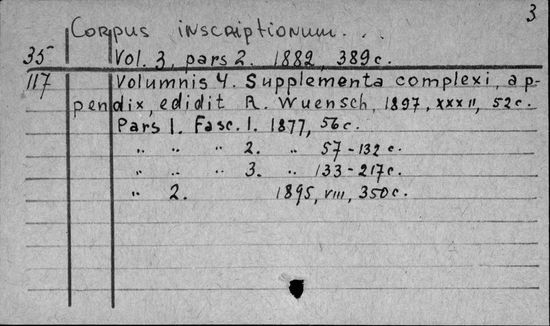 3
Corpus inscriptionum...
35 Vol. 3, pars 2. 1882, 389 c.
117 Volumnis 4. Supplementa complexi, ap-
pendix, edidit R. Wuensch, 1897, XXXII, 52 c.
Pars 1. Fasc. 1. 1877, 56 c.
" " " 2. " 57-132 c.
" " " 3. " 133-217 c.
" 2. 1895, VIII, 350 c.